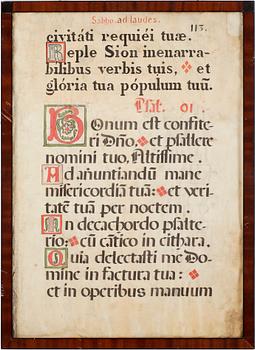 Sabbo. ad laudes.
113.
civitáti requiéi tuæ.
Reple Sion inenarra-
bilibus verbis tuis, et
glória tua pópulum tuū.
Psal. 91.
Bonum est confite-
ri Dño, et psállere
nomini tuo, Altissime.
Ad añuntiandū mane
misericordiā tuā: et veri-
tatē tuā per noctem.
In decachordo psalte-
rio; cū cātico in cithara.
Quia delectasti me Do-
mine in factura tua:
et in operibus manuum